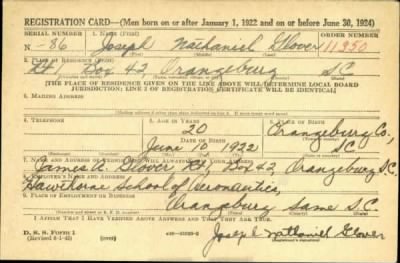 REGISTRATION CARD—(Men born on or after January 1, 1922 and on or before June 30, 1924)
SERIAL NUMBER 1. NAME (Print) ORDER NUMBER
N-86 Joseph Nathaniel Glover 11350
2. PLACE OF RESIDENCE (Print)
Rt 1 Box 42, Orangeburg S.C.
[THE PLACE OF RESIDENCE GIVEN ON THE LINE ABOVE WILL DETERMINE LOCAL BOARD
JURISDICTION; LINE 2 OF REGISTRATION CERTIFICATE WILL BE IDENTICAL]
3. MAILING ADDRESS
4. TELEPHONE 5. AGE IN YEARS 6. PLACE OF BIRTH
20 Orangeburg Co.,
DATE OF BIRTH
June 10 1922 S.C.
7. NAME AND ADDRESS OF PERSON WHO WILL ALWAYS KNOW YOUR ADDRESS
James A. Glover Rt 1, Box 42, Orangeburg S.C.
8. EMPLOYER'S NAME AND ADDRESS
Hawthorne School of Aeronautics,
9. PLACE OF EMPLOYMENT OR BUSINESS
Orangeburg Same S.C.
I AFFIRM THAT I HAVE VERIFIED ABOVE ANSWERS AND THAT THEY ARE TRUE.
D. S. S. Form 1
(Revised 6-1-42) (over)
Joseph Nathaniel Glover